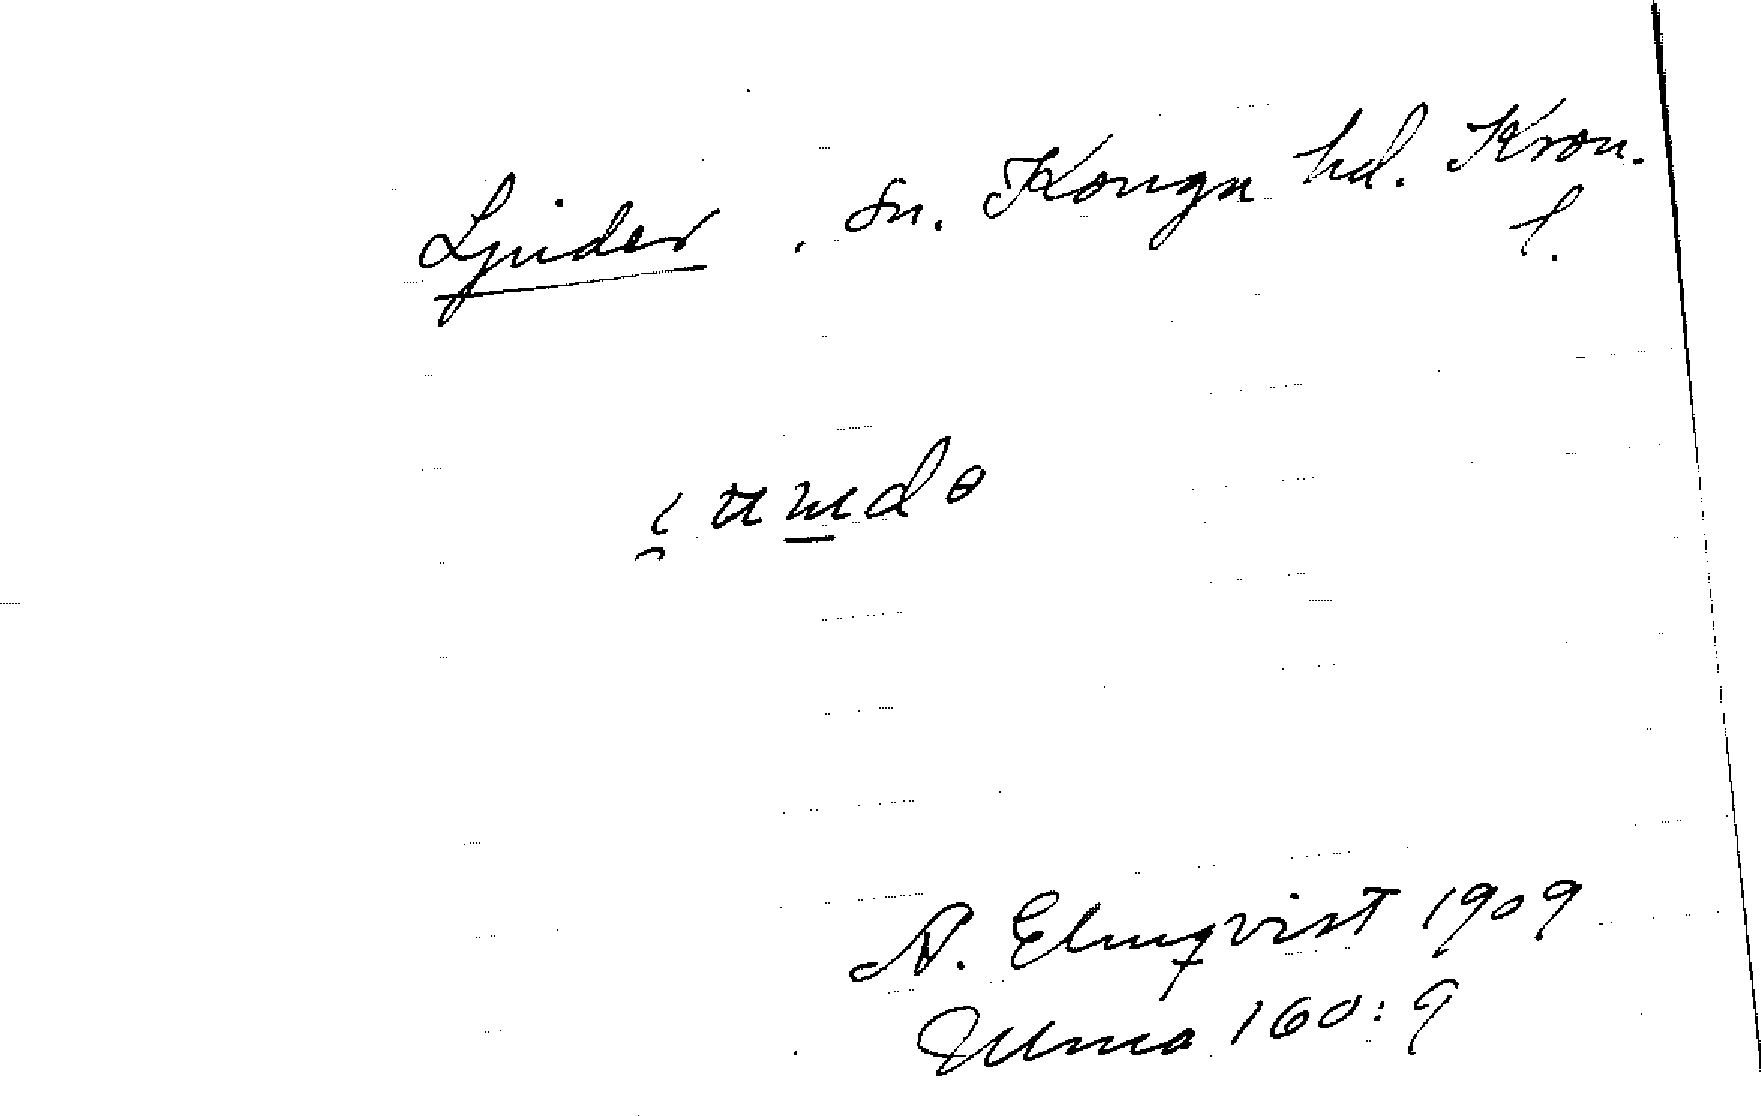 Ljuder, sn. Konga hd. Kron.
l.
A. Elmqvist 1909
Ulma 160:9